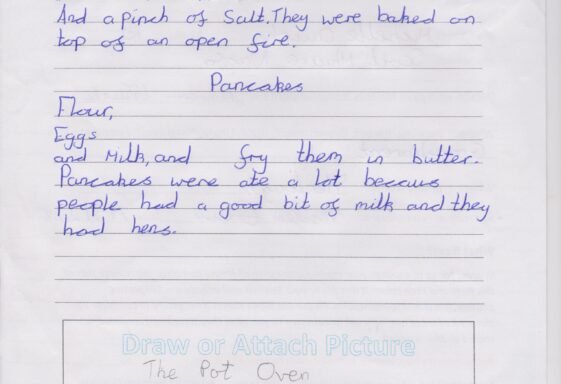 And a pinch of Salt. They were baked on
top of an open fire.
Pancakes
Flour,
Eggs
and Milk, and fry them in butter.
Pancakes were ate a lot becaus
people had a good bit of milk and they
had hens.
Draw or Attach Picture
The Pot Oven